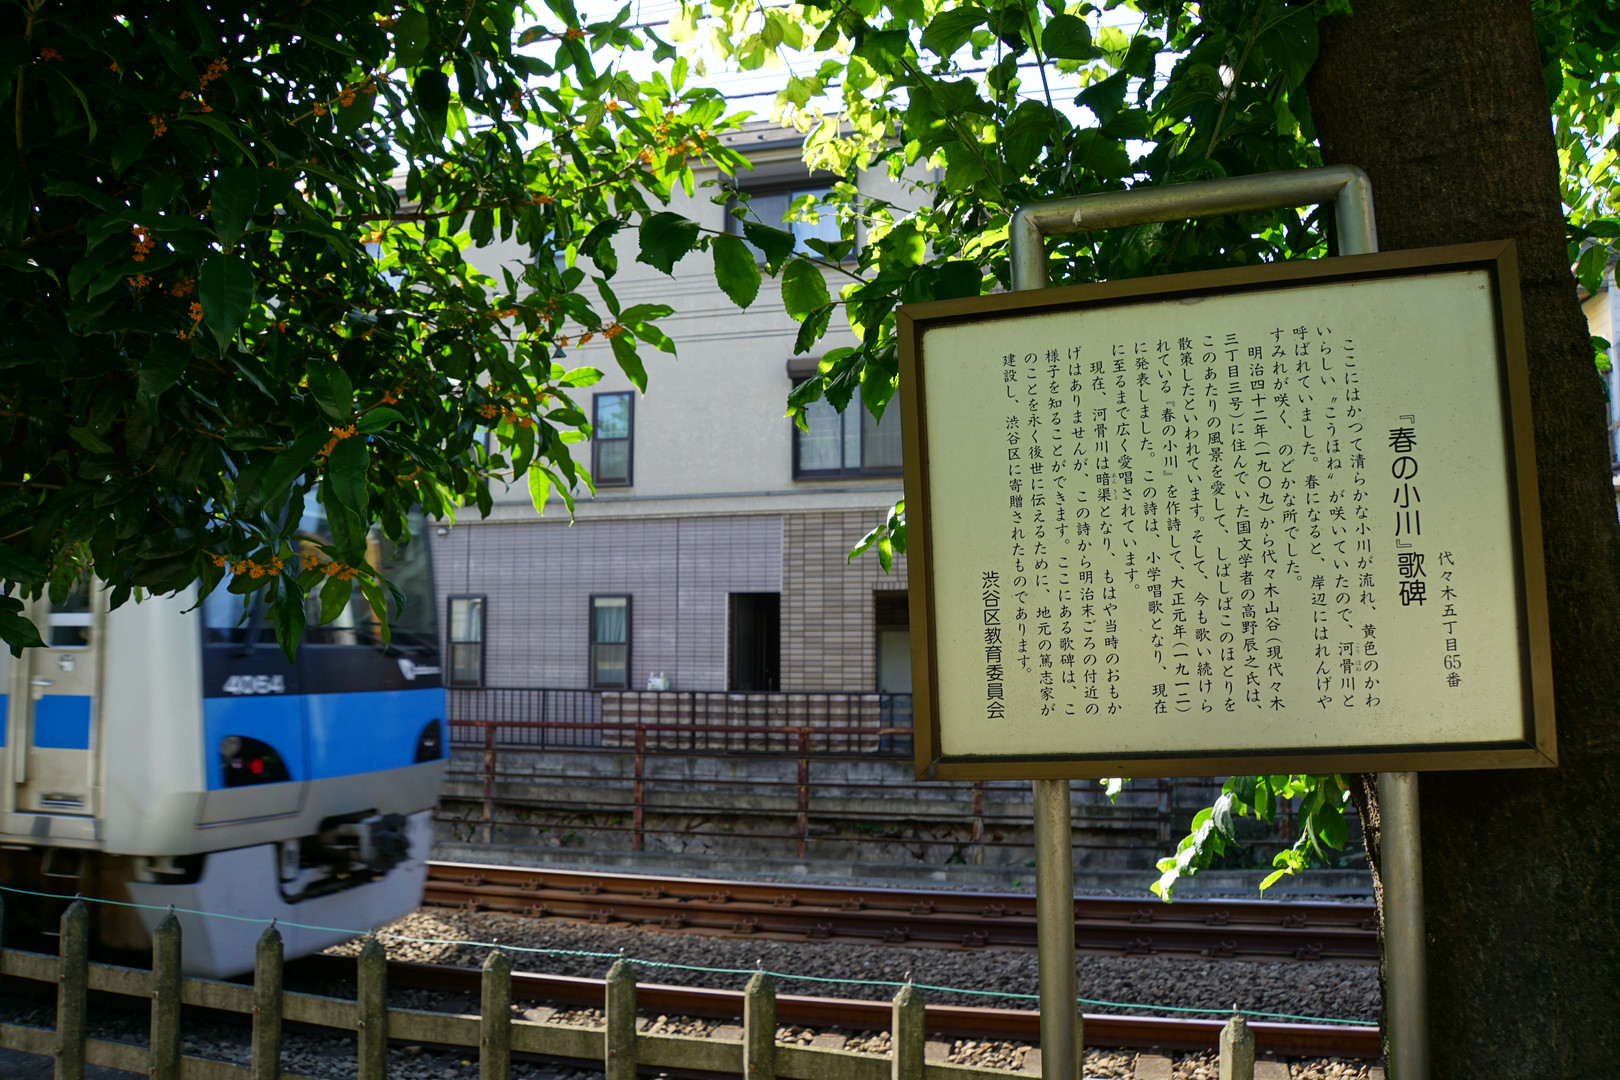 代々木五丁目65番
『春の小川』歌碑
ここにはかつて清らかな小川が流れ、黄色のかわ
いらしい〝こうほね〟が咲いていたので、河骨川と
呼ばれていました。春になると、岸辺にはれんげや
すみれが咲く、のどかな所でした。
明治四十二年(一九〇九)から代々木山谷(現代々木
三丁目三号)に住んでいた国文学者の高野辰之氏は、
このあたりの風景を愛して、しばしばこのほとりを
散策したといわれています。そして、今も歌い続けら
れている『春の小川』を作詩して、大正元年(一九一二)
に発表しました。この詩は、小学唱歌となり、現在
に至るまで広く愛唱されています。
現在、河骨川は暗渠となり、もはや当時のおもか
げはありませんが、この詩から明治末ごろの付近の
様子を知ることができます。ここにある歌碑は、こ
のことを永く後世に伝えるために、地元の篤志家が
建設し、渋谷区に寄贈されたものであります。
渋谷区教育委員会
4064